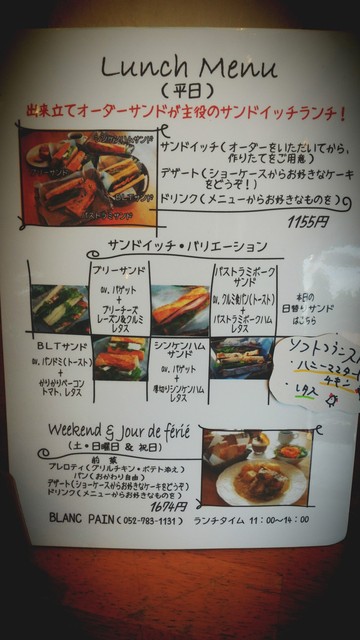 Lunch Menu
（平日）
出来立てオーダーサンドが主役のサンドイッチランチ！
サンドイッチ（オーダーをいただいてから、
作りたてをご用意）
デザート（ショーケースからお好きなケーキ
をどうぞ！）
ドリンク（メニューからお好きなものを）
1155円
ブリーサンド
BLTサンド
パストラミサンド
サンドイッチ・バリエーション
ブリーサンド
ov. バゲット
+
ブリーチーズ
レーズン&クルミ
レタス
パストラミポーク
サンド
ov. クルミ食パン(トースト)
+
パストラミポークハム
レタス
本日の
日替りサンド
はこちら
BLTサンド
ov. パンドミ(トースト)
+
かりかりベーコン
トマト、レタス
シンケンハム
サンド
ov. バゲット
+
厚切りシンケンハム
レタス
ソフトフランス
・ハニーマスター
チキン
・レタス
Weekend & Jour de férié
（土・日曜日 & 祝日）
前菜
プレロティ(グリルチキン・ポテト添え)
パン(おかわり自由)
デザート(ショーケースからお好きなケーキをどうぞ)
ドリンク(メニューからお好きなものを)
1674円
BLANC PAIN(052-783-1131) ランチタイム 11：00〜14：00